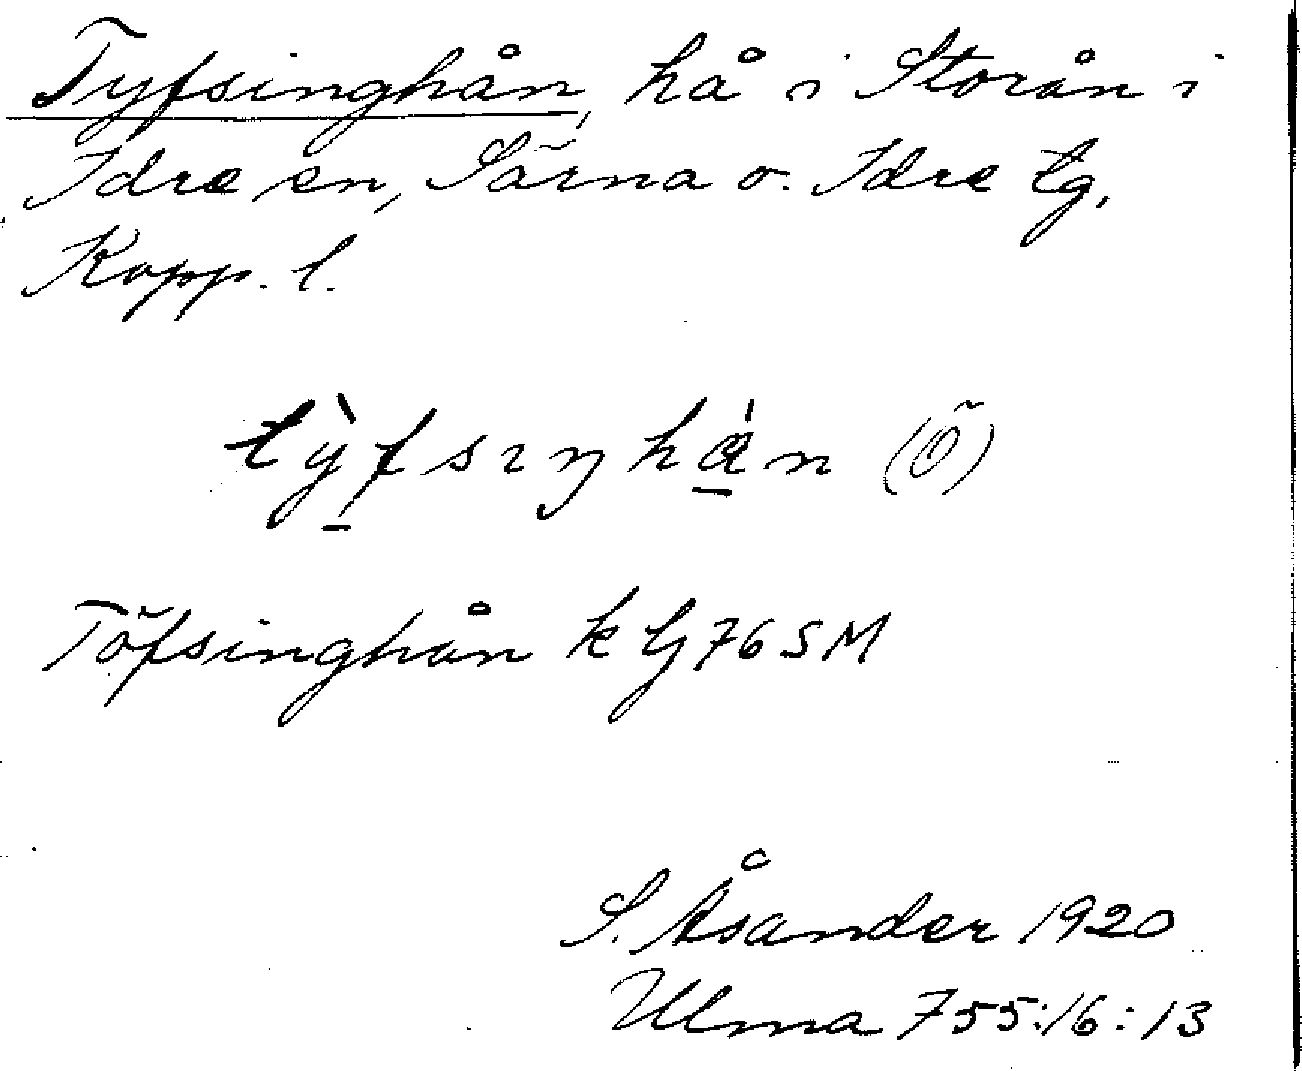 Tyfsinghån, hå i Storån i
Idre sn, Särna o. Idre tg,
Kopp. l.
tỳfsıŋhän (Ö)
Töfsinghån k Lj 76 SM
S. Åsander 1920
Ulma 755:16:13